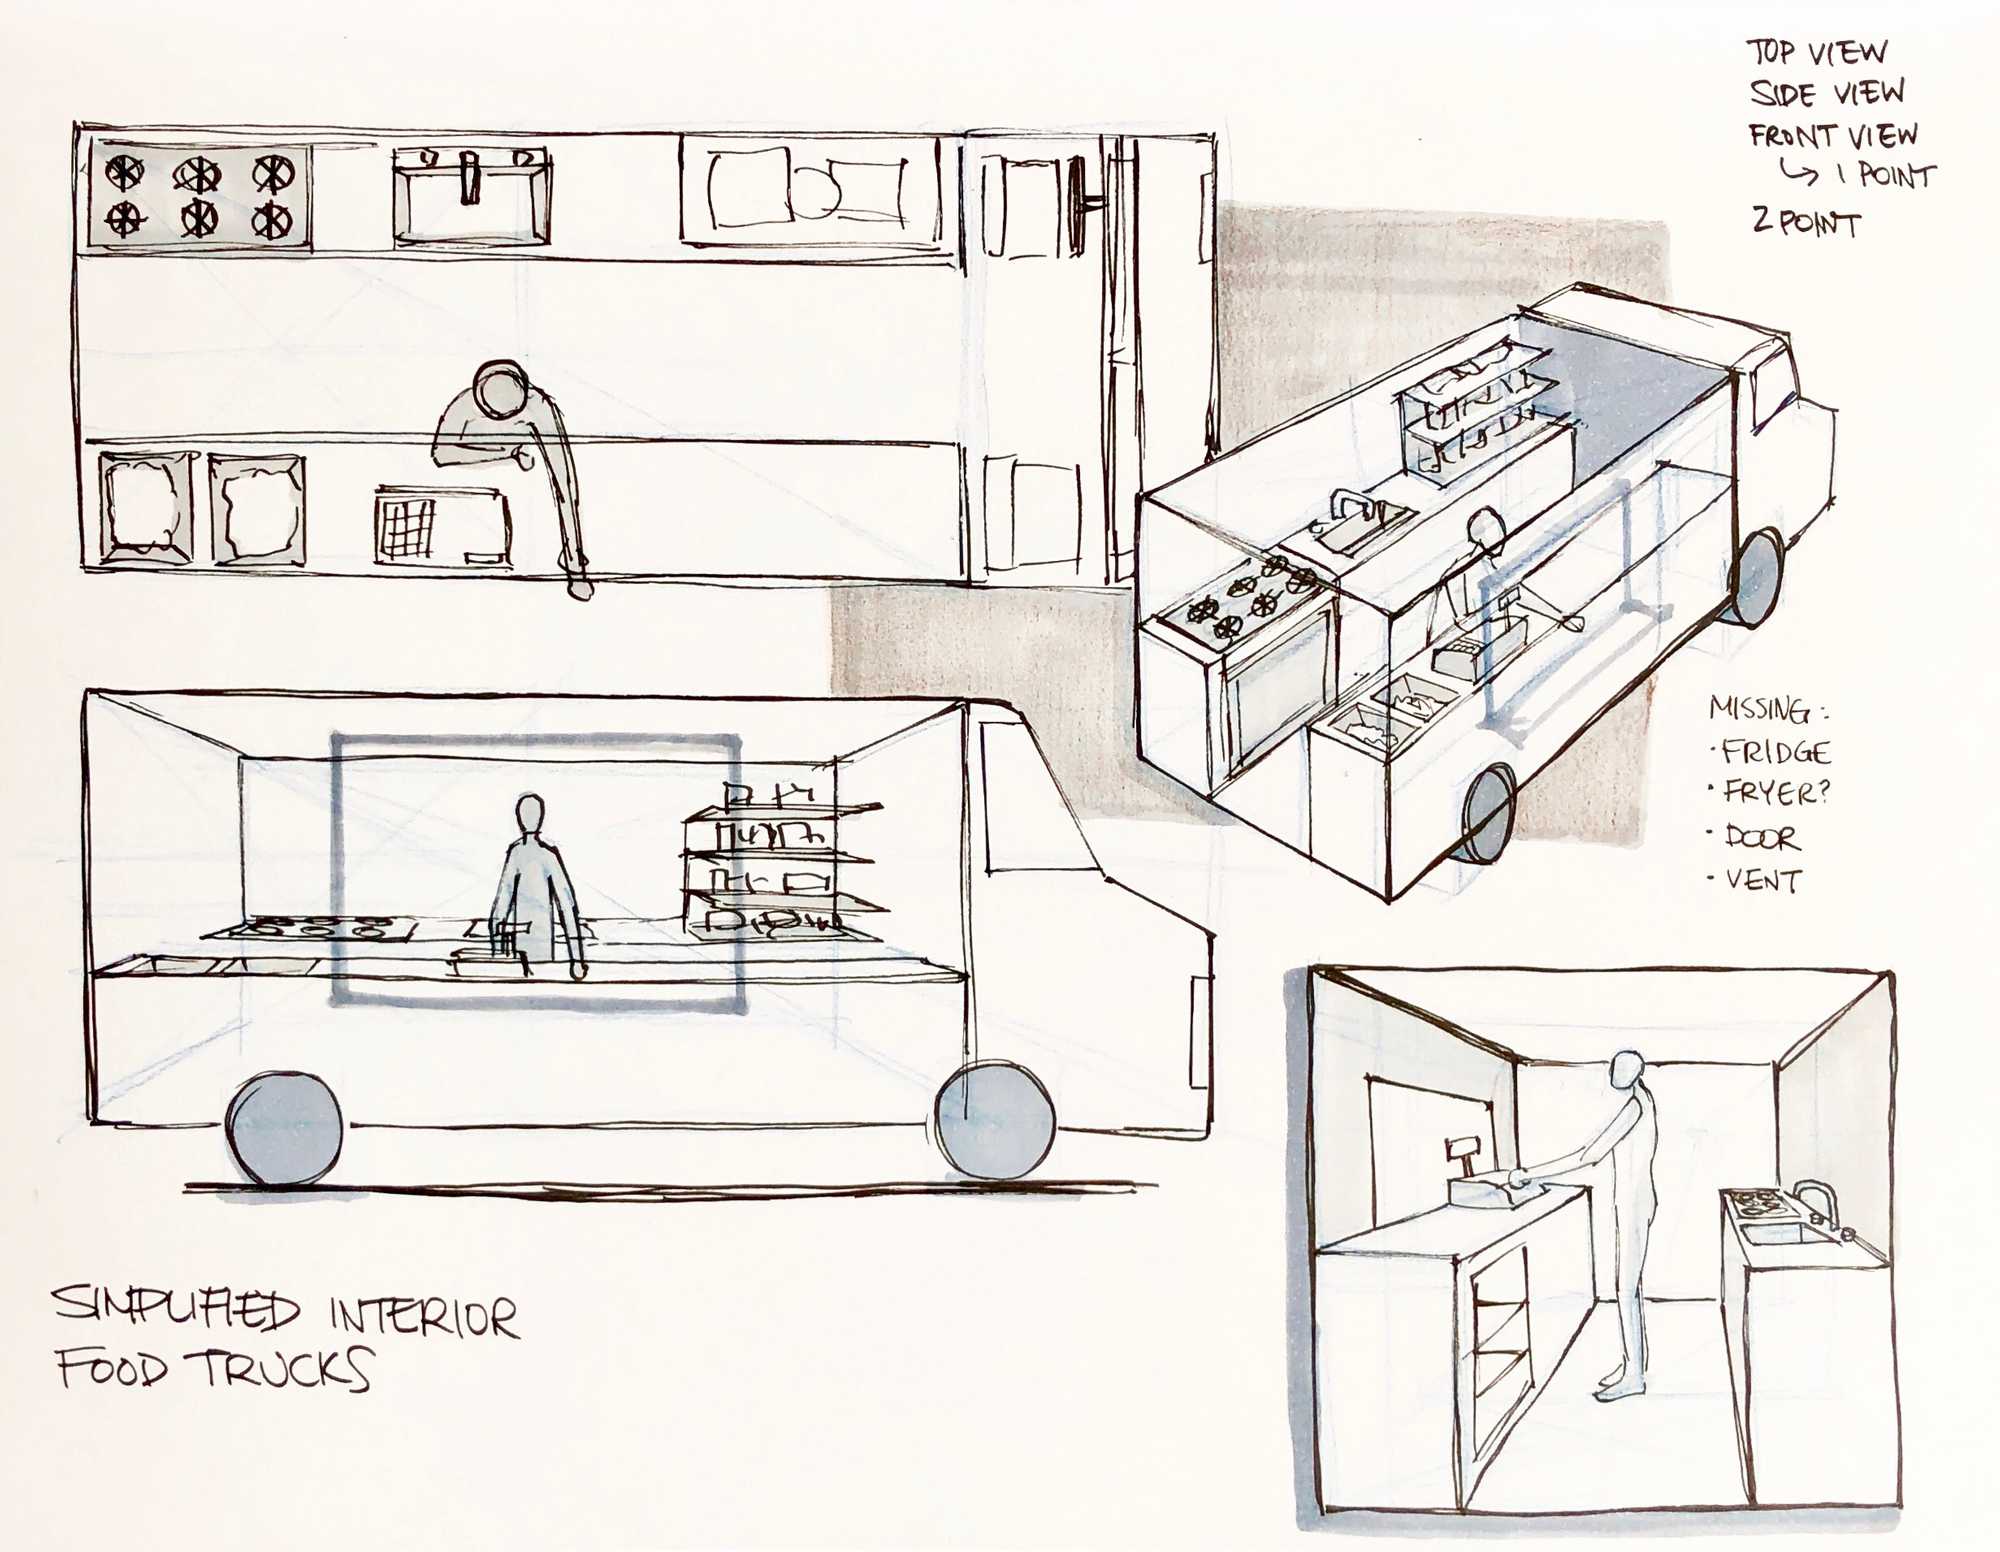 TOP VIEW
SIDE VIEW
FRONT VIEW
↳ 1 POINT
2 POINT
MISSING:
· FRIDGE
· FRYER?
· DOOR
· VENT
SIMPLIFIED INTERIOR
FOOD TRUCKS